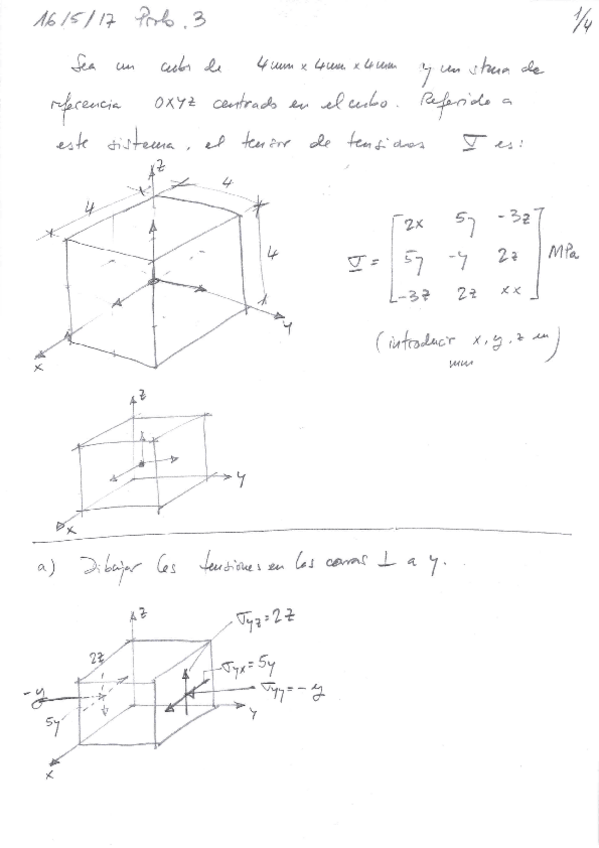 16/5/17 Prob. 3
1/4
Sea un cubo de 4mm x 4mm x 4mm y un stma de
referencia OXYZ centrado en el cubo. Referido a
este sistema, el tensor de tensiones ∇ es:
z
4
4
4
y
x
∇ = [2x 5y -3z
5y -y 2z
-3z 2z xx] MPa
(introducir x, y, z en
mm)
z
y
x
a) Dibujar las tensiones en las caras ⊥ a y.
z
σyz = 2z
2z
σyx = 5y
-y
σyy = -y
5y
y
x